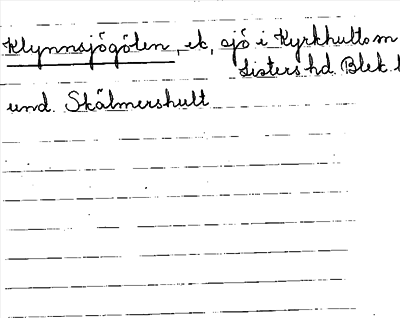 Klynnsjögölen, ek, sjö i Kyrkhults sn
Listers hd. Blek. l
und. Skälmershult